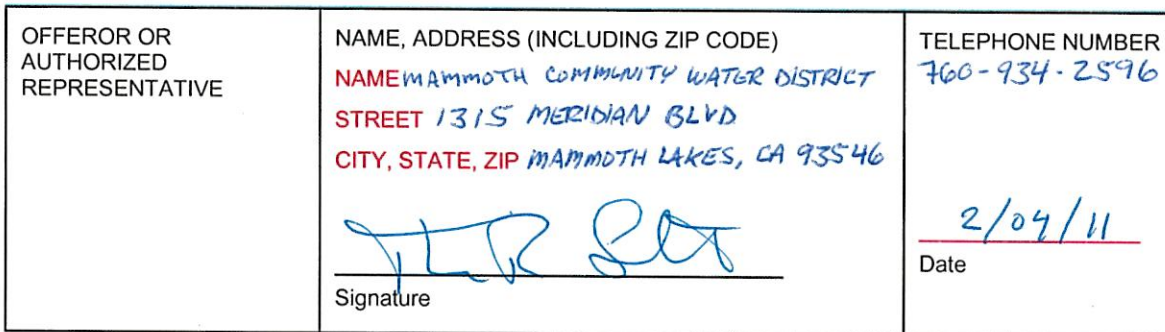 OFFEROR OR
AUTHORIZED
REPRESENTATIVE
NAME, ADDRESS (INCLUDING ZIP CODE)
NAME MAMMOTH COMMUNITY WATER DISTRICT
STREET 1315 MERIDIAN BLVD
CITY, STATE, ZIP MAMMOTH LAKES, CA 93546
Signature
TELEPHONE NUMBER
760-934-2596
2/04/11
Date